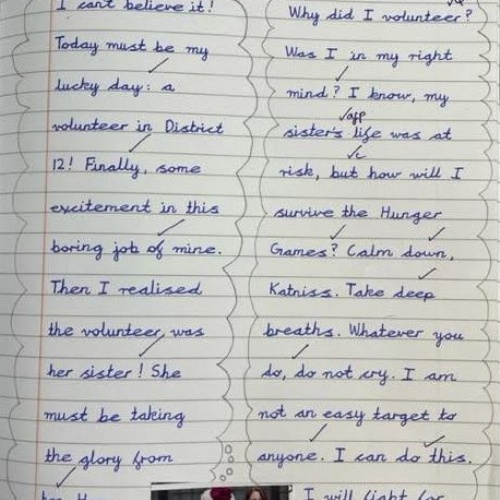 I can't believe it!
Today must be my
lucky day: a
volunteer in District
12! Finally, some
excitement in this
boring job of mine.
Then I realised
the volunteer, was
her sister! She
must be taking
the glory from
Why did I volunteer?
Was I in my right
mind? I know, my
app
sister's life was at
c
risk, but how will I
survive the Hunger
Games? Calm down,
Katniss. Take deep
breaths. Whatever you
do, do not cry. I am
not an easy target to
anyone. I can do this.
I will fight for